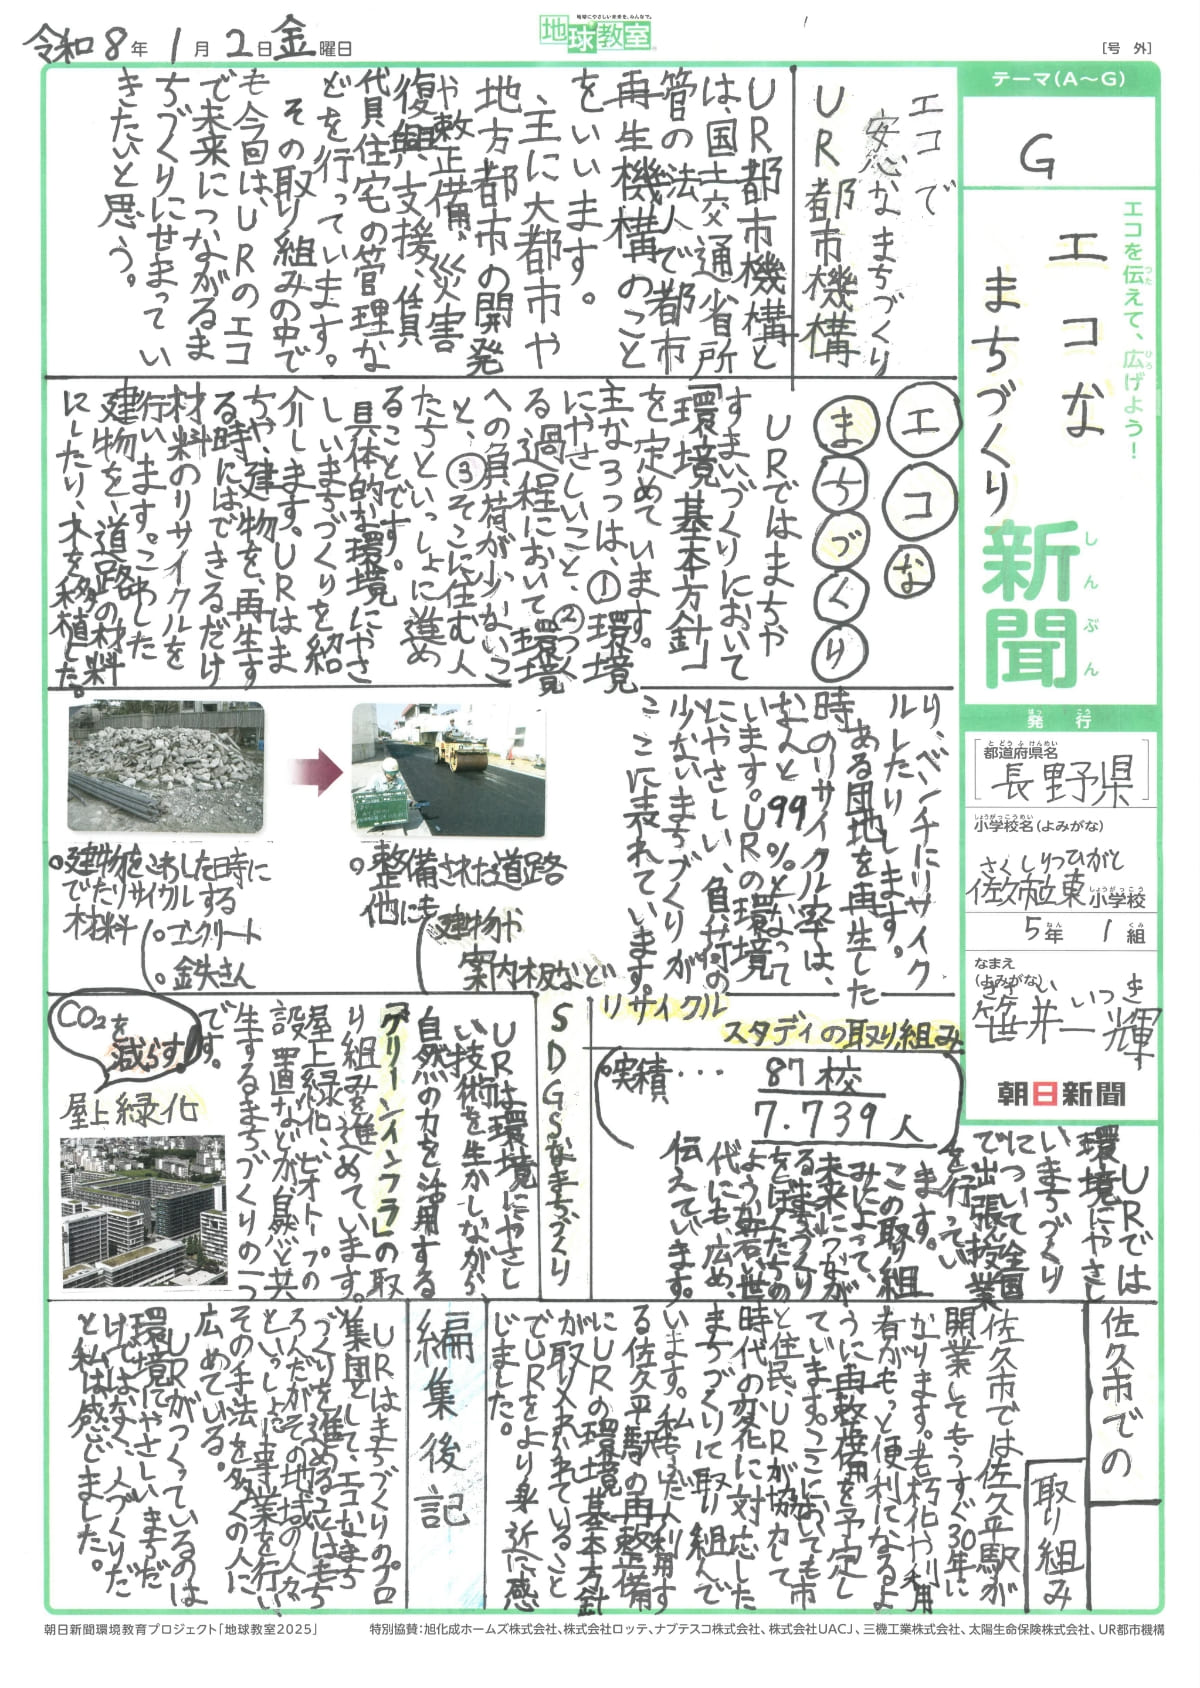 令和8年1月2日金曜日
地球にやさしい未来を、みんなで。
地球教室
［号 外］
テーマ(A〜G)
G
エコを伝えて、広げよう！
つた
ひろ
エコな
まちづくり
新聞
しんぶん
発行
はっこう
都道府県名
とどうふけんめい
［長野県］
小学校名(よみがな)
しょうがっこうめい
さくしりつひがし
佐久市立東小学校
しょうがっこう
5年 1組
ねん くみ
なまえ
(よみがな)
ささい いつき
笹井一輝
朝日新聞
エコで
安心なまちづくり
UR都市機構
UR都市機構と
は、国土交通省所
管の法人で都市
再生機構のこと
をいいます。
主に大都市や
地方都市の開発
や整備、災害
復興支援、賃
貸住宅の管理な
どを行っています。
その取り組みの中で
も今回は、URのエコ
で未来につながるま
ちづくりにせまってい
きたいと思う。
エコな
まちづくり
URではまちや
すまいづくりにおいて
「環境基本方針」
を定めています。
主な3つは、①環境
にやさしいこと、②つく
る過程において環境
への負荷が少ないこ
と、③そこに住む人
たちといっしょに進め
ることです。
具体的な環境にやさ
しいまちづくりを紹
介します。URはま
ちや、建物を、再生す
る時にはできるだけ
材料のリサイクルを
行います。こわした
建物を、道路の材料
にしたり、木を移植した
り、ベンチにリサイク
ルしたりします。
ある団地を再生した
時のリサイクル率は、
なんと99%となって
います。URの環境
にやさしい、負荷の
少ないまちづくりが
ここに表れています。
。建物をこわした時に
でたリサイクルする
材料
。コンクリート
。鉄きん
。整備された道路
他にも
建物や
案内板など
SDGSなまちづくり
URは環境にやさし
い技術を生かしながら、
自然の力を活用する
「グリーンインフラ」の取
り組みを進めています。
屋上緑化、ビオトープの
設置などが自然と共
生するまちづくりの一つ
です。
CO2を
減らす!
屋上緑化
リサイクル
スタディの取り組み
。実績・・・
87校
7.739人
URでは
環境にやさし
いまちづくり
について全国
で出張授業
を行ってい
ます。
この取り組
みによって、
未来につなが
るまちづくり
をぼくたちの
ような若い世
代にも広め、
伝えています。
佐久市での
取り組み
佐久市では佐久平駅が
開業してもうすぐ30年に
なります。老朽化や利用
者がもっと便利になるよ
うに再整備を予定し
ています。ここにおいても市
と住民、URが協力して
時代の変化に対応した
まちづくりに取り組んで
います。私もふだん利用す
る佐久平駅の再整備
にURの環境基本方針
が取り入れられていること
でURをより身近に感
じました。
編集後記
URはまちづくりのプロ
集団として、エコなまち
づくりを進めることはもち
ろんだがその地域の人々
といっしょに事業を行い、
その手法を多くの人に
広めている。
URがつくっているのは
環境にやさしいまちだ
けではなく、人づくりだ
と私は感じました。
朝日新聞環境教育プロジェクト「地球教室2025」
特別協賛：旭化成ホームズ株式会社、株式会社ロッテ、ナブテスコ株式会社、株式会社UACJ、三機工業株式会社、太陽生命保険株式会社、UR都市機構